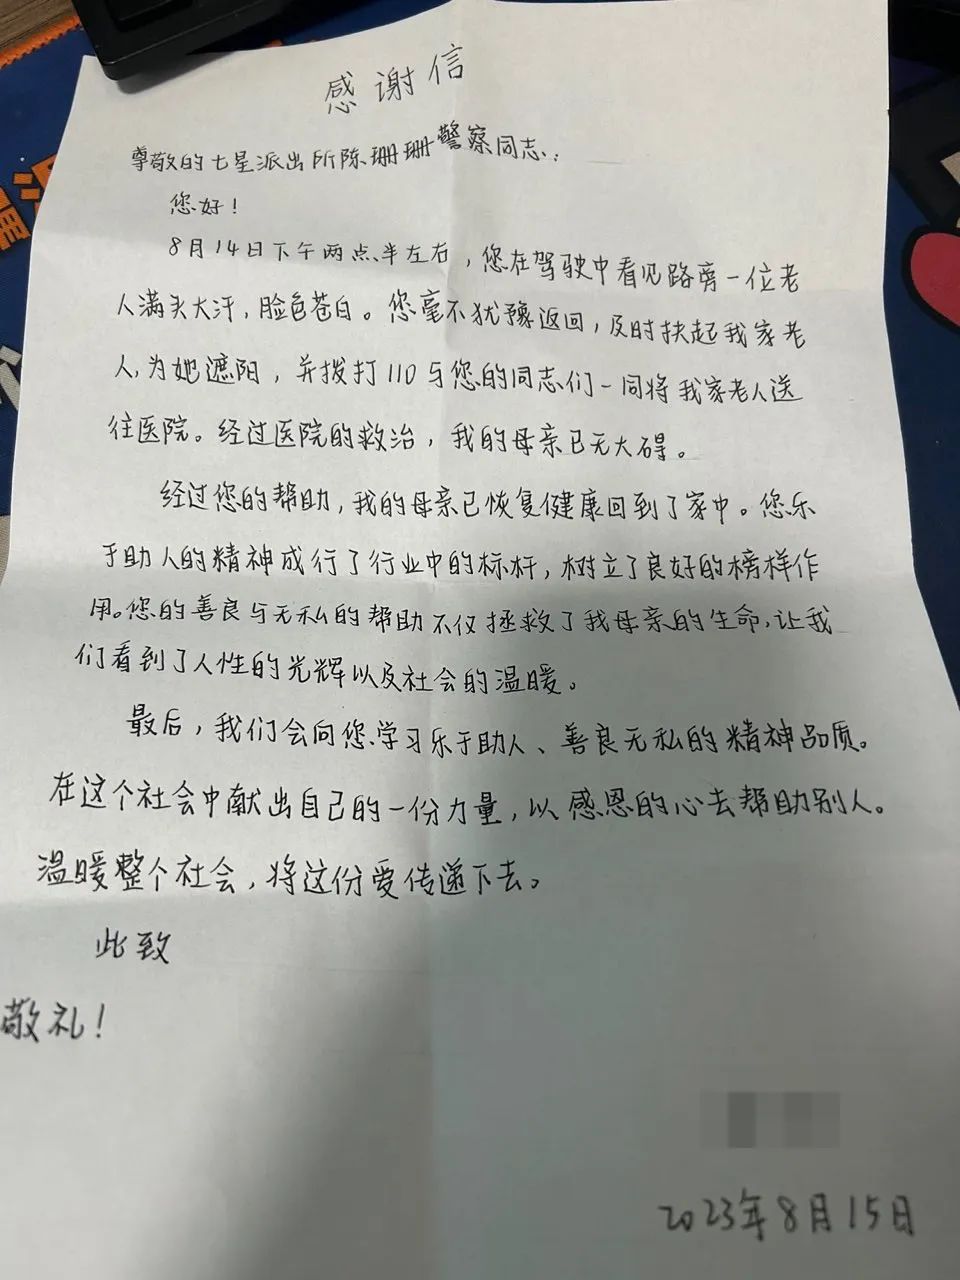 感谢信
尊敬的七星派出所陈珊珊警察同志：
您好！
8月14日下午两点半左右，您在驾驶中看见路旁一位老
人满头大汗，脸色苍白。您毫不犹豫返回，及时扶起我家老
人，为她遮阳，并拨打110与您的同志们一同将我家老人送
往医院。经过医院的救治，我的母亲已无大碍。
经过您的帮助，我的母亲已恢复健康回到了家中。您乐
于助人的精神成行了行业中的标杆，树立了良好的榜样作
用。您的善良与无私的帮助不仅拯救了我母亲的生命，让我
们看到了人性的光辉以及社会的温暖。
最后，我们会向您学习乐于助人、善良无私的精神品质。
在这个社会中献出自己的一份力量，以感恩的心去帮助别人。
温暖整个社会，将这份爱传递下去。
此致
敬礼！
2023年8月15日